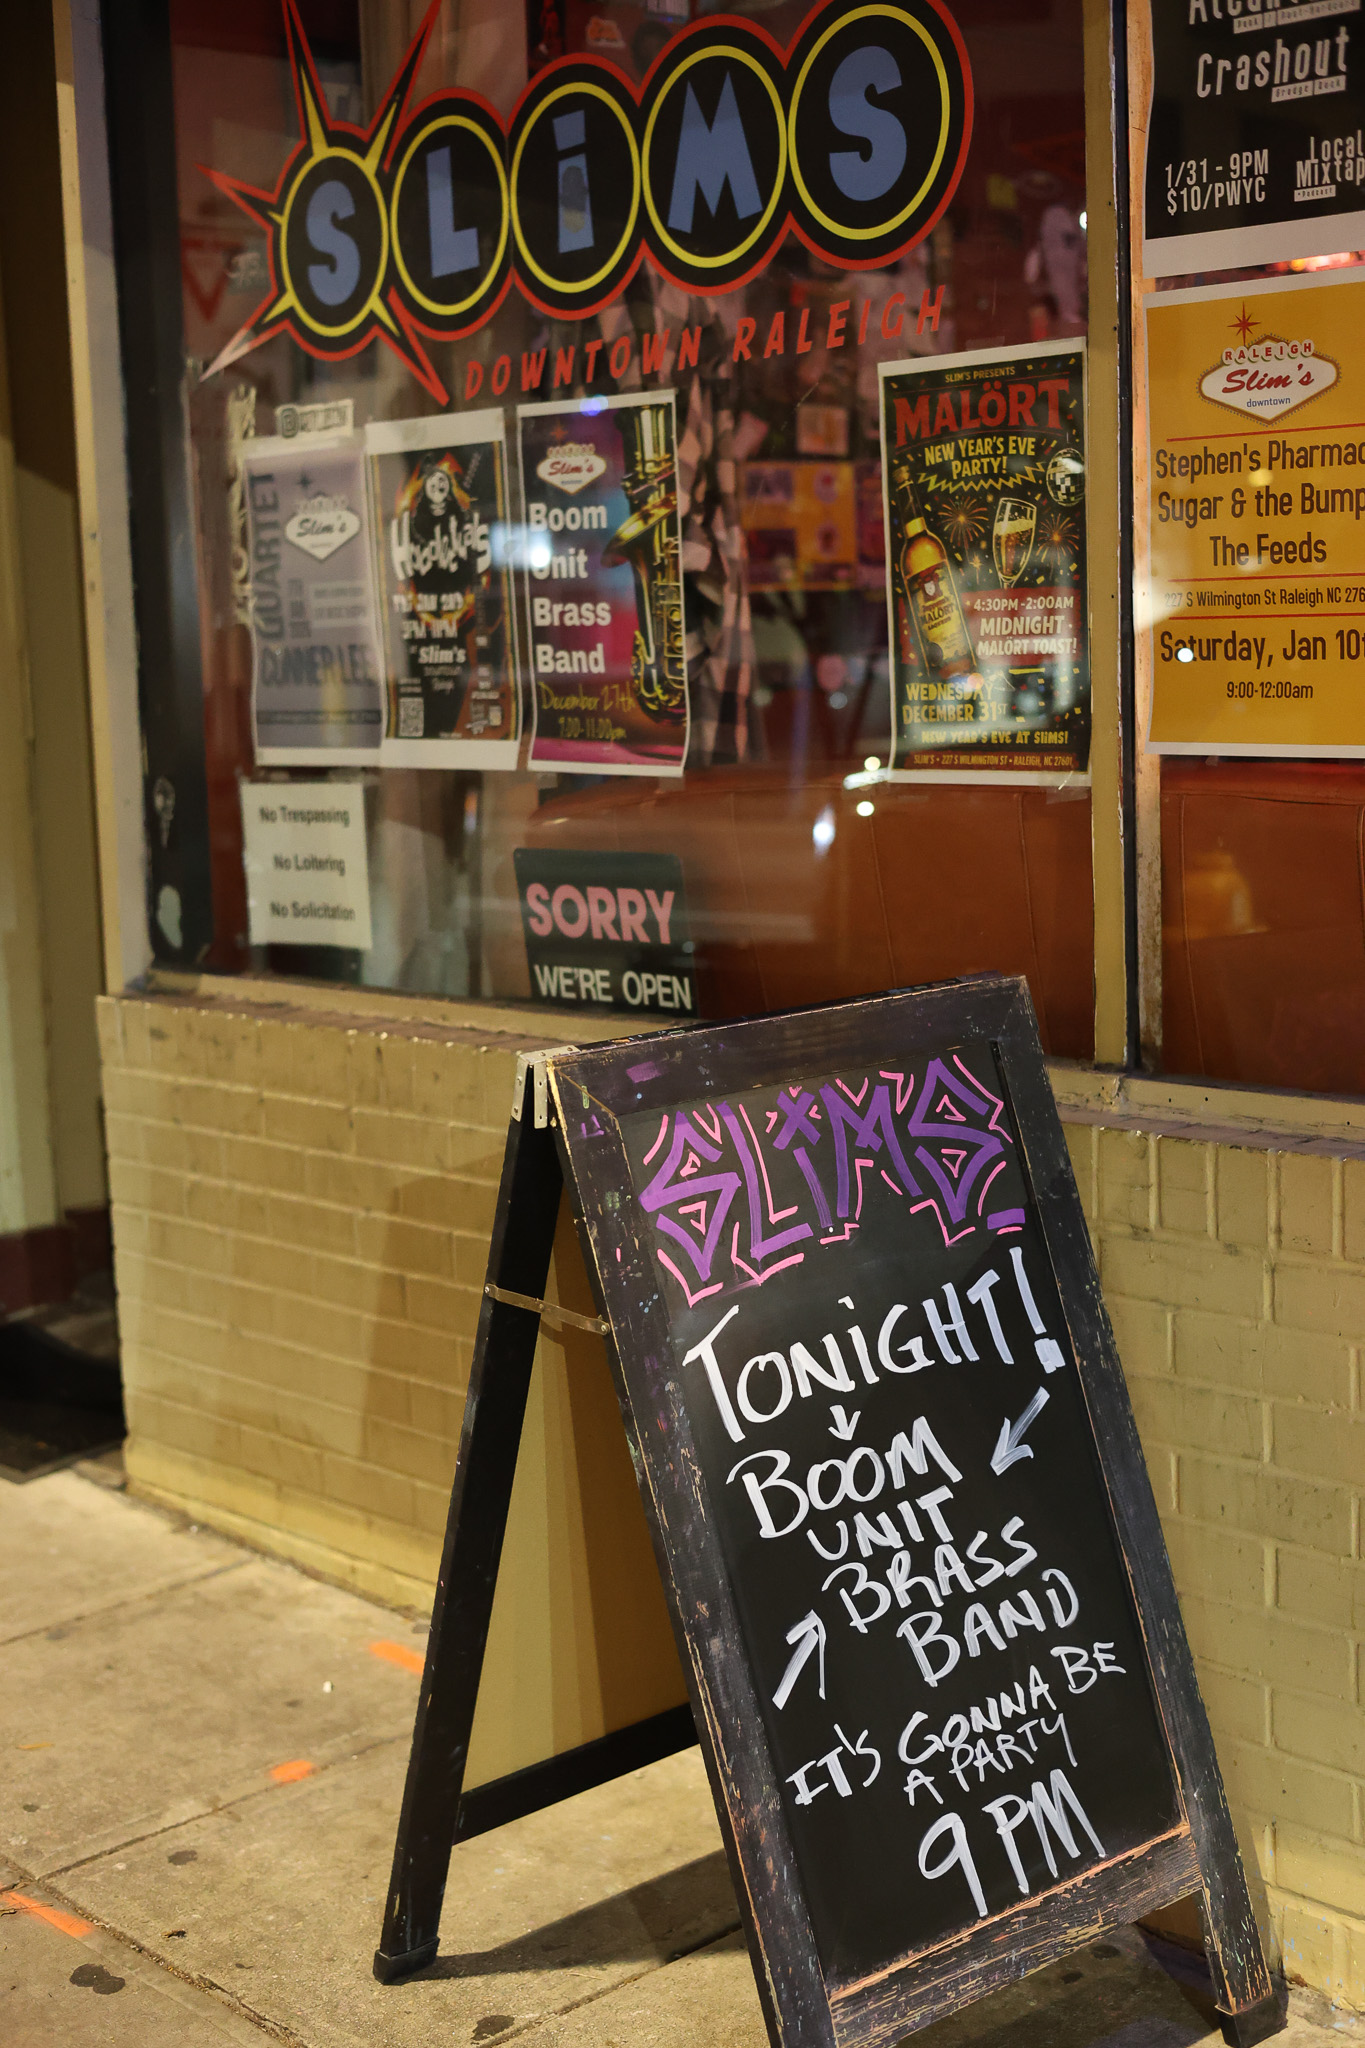 SLiMS
DOWNTOWN RALEIGH
Crashout
Grudge Rock
1/31 - 9PM
$10/PWYC
Local
RALEIGH
Slim's
downtown
Stephen's
Sugar & the
The Feeds
S Wilmington St Raleigh NC
Saturday, Jan
9:00-12:00am
SLIM'S PRESENTS
MALÖRT
NEW YEAR'S EVE
PARTY!
MALÖRT
4:30PM -2:00AM
MIDNIGHT
MALÖRT TOAST!
WEDNESDAY
DECEMBER 31ST
NEW YEAR'S EVE AT SLIMS!
SLIM'S • 227 S WILMINGTON ST • RALEIGH, NC 27601
Slim's
Boom
Unit
Brass
Band
December 27th
9:00-11:00pm
Slim's
QUARTET
Slim's
CONNER LEE
No Trespassing
No Loitering
No Solicitation
SORRY
WE'RE OPEN
SLiMS
TONiGHT!
BOOM
UNIT
BRASS
BAND
IT'S GONNA BE
A PARTY
9 PM